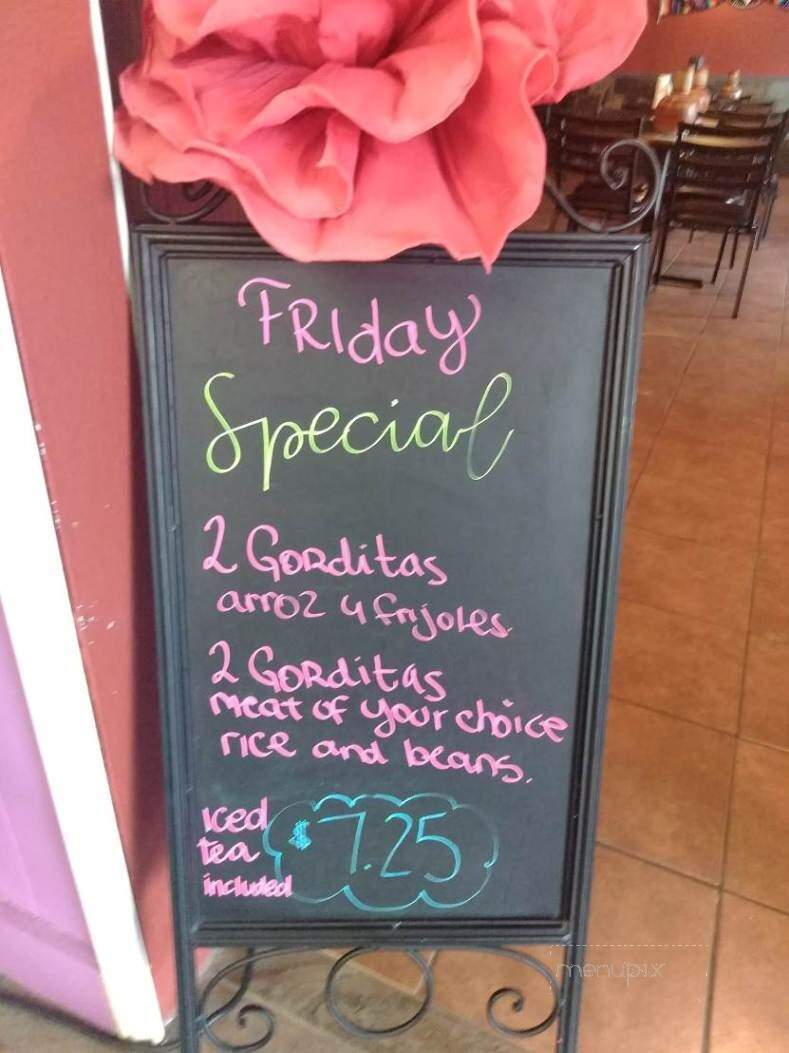 FRIday
Special
2 GORditas
arroz y frijoles
2 GORditas
meat of your choice
rice and beans.
iced
tea
included
$7.25
menupix